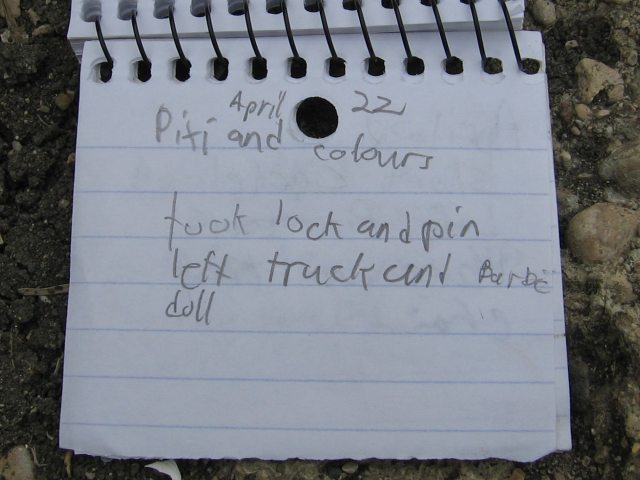 April 22
Piti and colours
took lock and pin
left truck and Barbie
doll